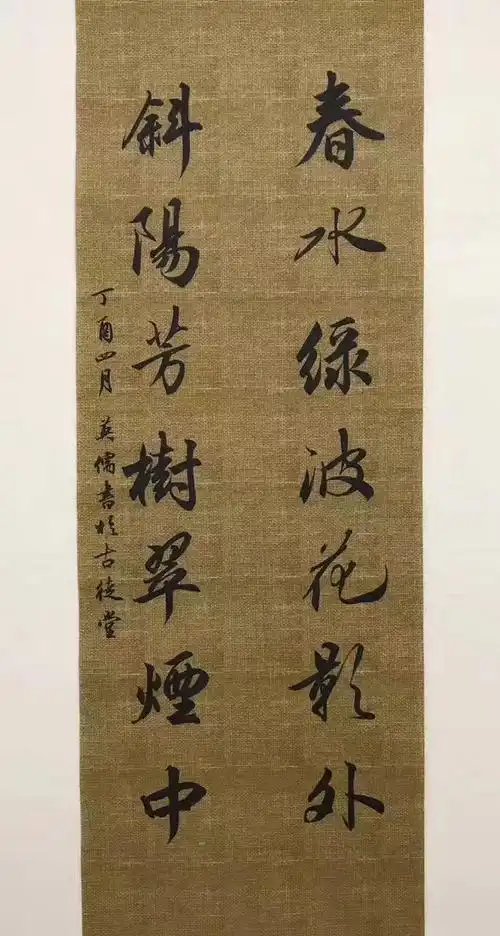 春水緑波花影外
斜陽芳樹翠煙中
丁酉四月 英儒書於古徒堂